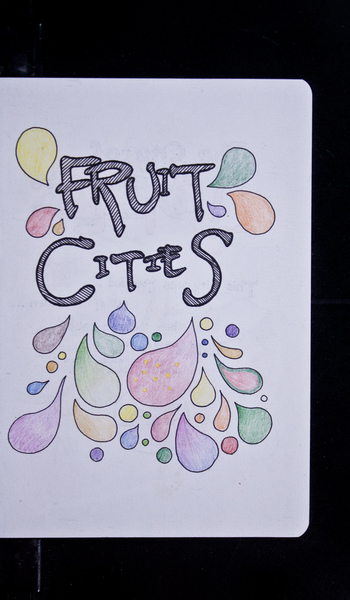 FRUIT
CITIES